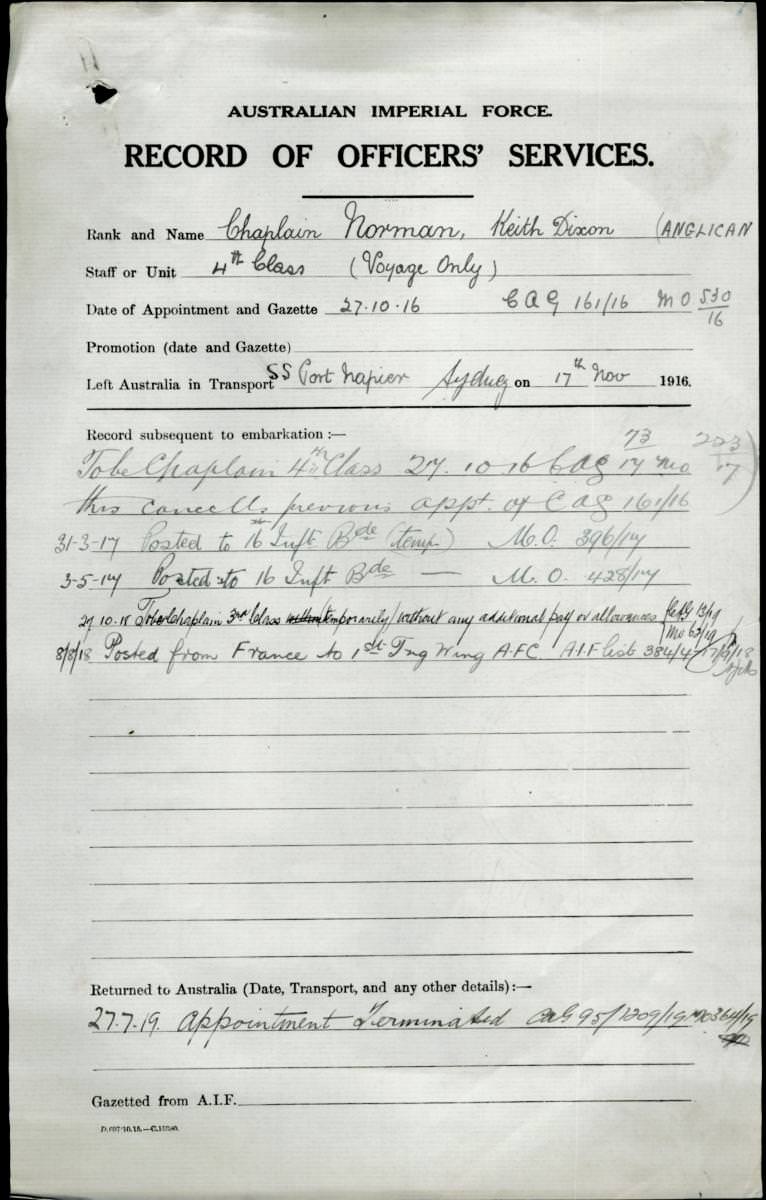 AUSTRALIAN IMPERIAL FORCE.
RECORD OF OFFICERS' SERVICES.
Rank and Name Chaplain Norman, Keith Dixon (ANGLICAN
Staff or Unit 4th Class (Voyage Only)
Date of Appointment and Gazette 27.10.16 C A G 161/16 M O 530/16
Promotion (date and Gazette)
Left Australia in Transport SS Port Napier Sydney on 17th Nov 1916.
Record subsequent to embarkation :—
To be Chaplain 4th Class 27.10.16 C A G 73/17 Mo 223/17)
this cancells previous appt. of C A G 161/16
31-3-17 Posted to 16th Inft Bde (temp) M.O. 396/17
3-5-17 Posted to 16 Inft Bde — M. O. 428/17
27.10.18 To be Chaplain 3rd Class temporarily/without any additional pay or allowances 13/19
Mo 63/19
8/8/18 Posted from France to 1st Tng Wing A.F.C. A.I.F list 384/4
Returned to Australia (Date, Transport, and any other details) :—
27.7.19. Appointment Terminated CAG 95/1209/19 MO364/19
Gazetted from A.I.F.